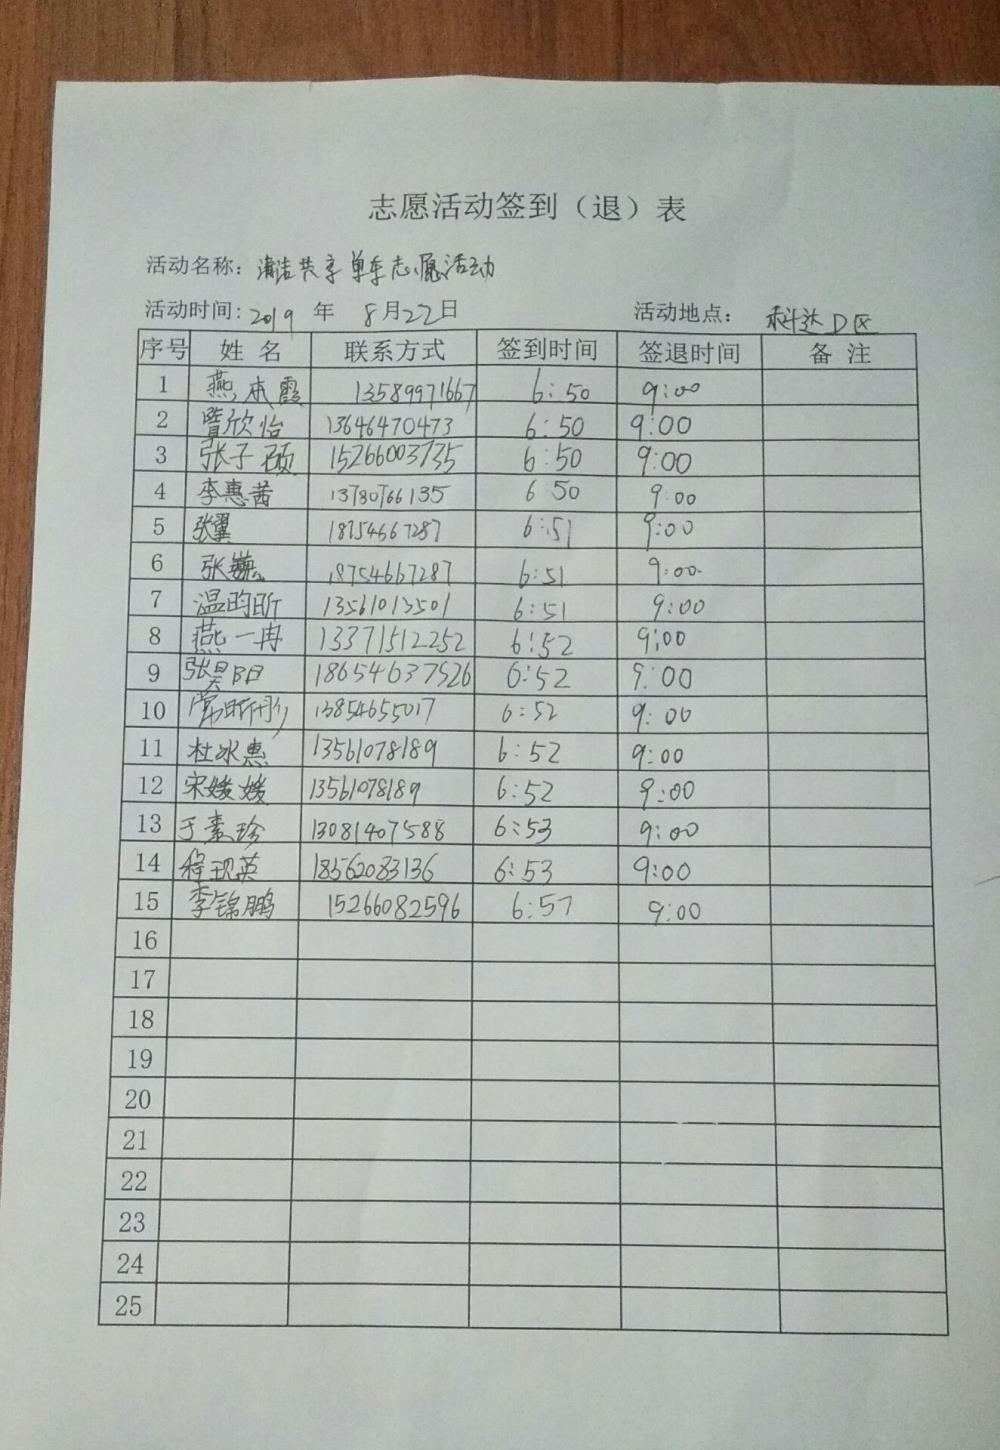 志愿活动签到（退）表
活动名称：清洁共享单车志愿活动
活动时间：2019 年 8月22日 活动地点：科达D区
序号 姓 名 联系方式 签到时间 签退时间 备 注
1 燕本霞 13589971667 6:50 9:00
2 欣怡 13646470473 6:50 9:00
3 张子硕 15266003735 6:50 9:00
4 李惠茜 13780766135 6:50 9:00
5 张翼 18754667287 6:51 9:00
6 张 18754667287 6:51 9:00
7 温昀昕 13561013501 6:51 9:00
8 燕一冉 13371512252 6:52 9:00
9 张昊阳 18654637526 6:52 9:00
10 常昕彤 13854655017 6:52 9:00
11 杜冰惠 13561078189 6:52 9:00
12 宋媛媛 13561078189 6:52 9:00
13 于素珍 13081407588 6:53 9:00
14 程现英 18562083136 6:53 9:00
15 李锦鹏 15266082596 6:57 9:00
16
17
18
19
20
21
22
23
24
25